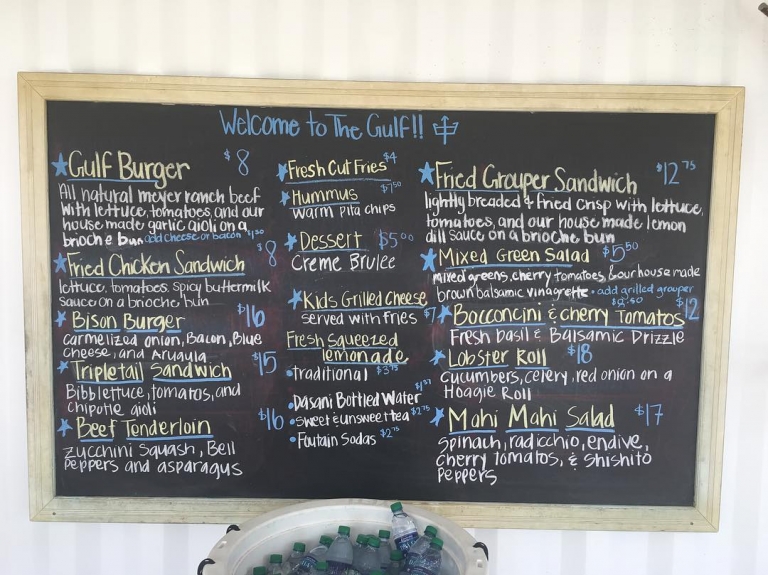 Welcome to The Gulf!!
Gulf Burger $8
All natural meyer ranch beef
with lettuce, tomatoes, and our
house made garlic aioli on a
brioche bun add cheese or bacon
Fried Chicken Sandwich $8
lettuce, tomatoes, spicy buttermilk
sauce on a brioche bun
Bison Burger $16
carmelized onion, Bacon, Blue
Cheese, and Arugula
Tripletail Sandwich $15
Bibb lettuce, tomatos, and
Chipotle aioli
Beef Tenderloin $16
zucchini squash, Bell
Peppers and asparagus
Fresh Cut Fries $4
Hummus $7.50
warm pita chips
Dessert $5.00
Creme Brulee
Kids Grilled Cheese
served with fries $7
Fresh squeezed
lemonade
• traditional $3.75
• Dasani Bottled Water
• sweet & unsweet tea $2.75
• Foutain Sodas $2.75
Fried Grouper Sandwich $12.75
lightly breaded & fried crisp with lettuce,
tomatoes, and our house made lemon
dill sauce on a brioche bun
Mixed Green Salad $5.50
mixed greens, cherry tomatoes, & our house made
brown balsamic vinaigrette • add grilled grouper
Bocconcini & cherry Tomatos $12
Fresh basil & Balsamic Drizzle
Lobster Roll $18
cucumbers, celery, red onion on a
Hoagie Roll
Mahi Mahi Salad $17
Spinach, radicchio, endive,
cherry tomatos, & Shishito
Peppers